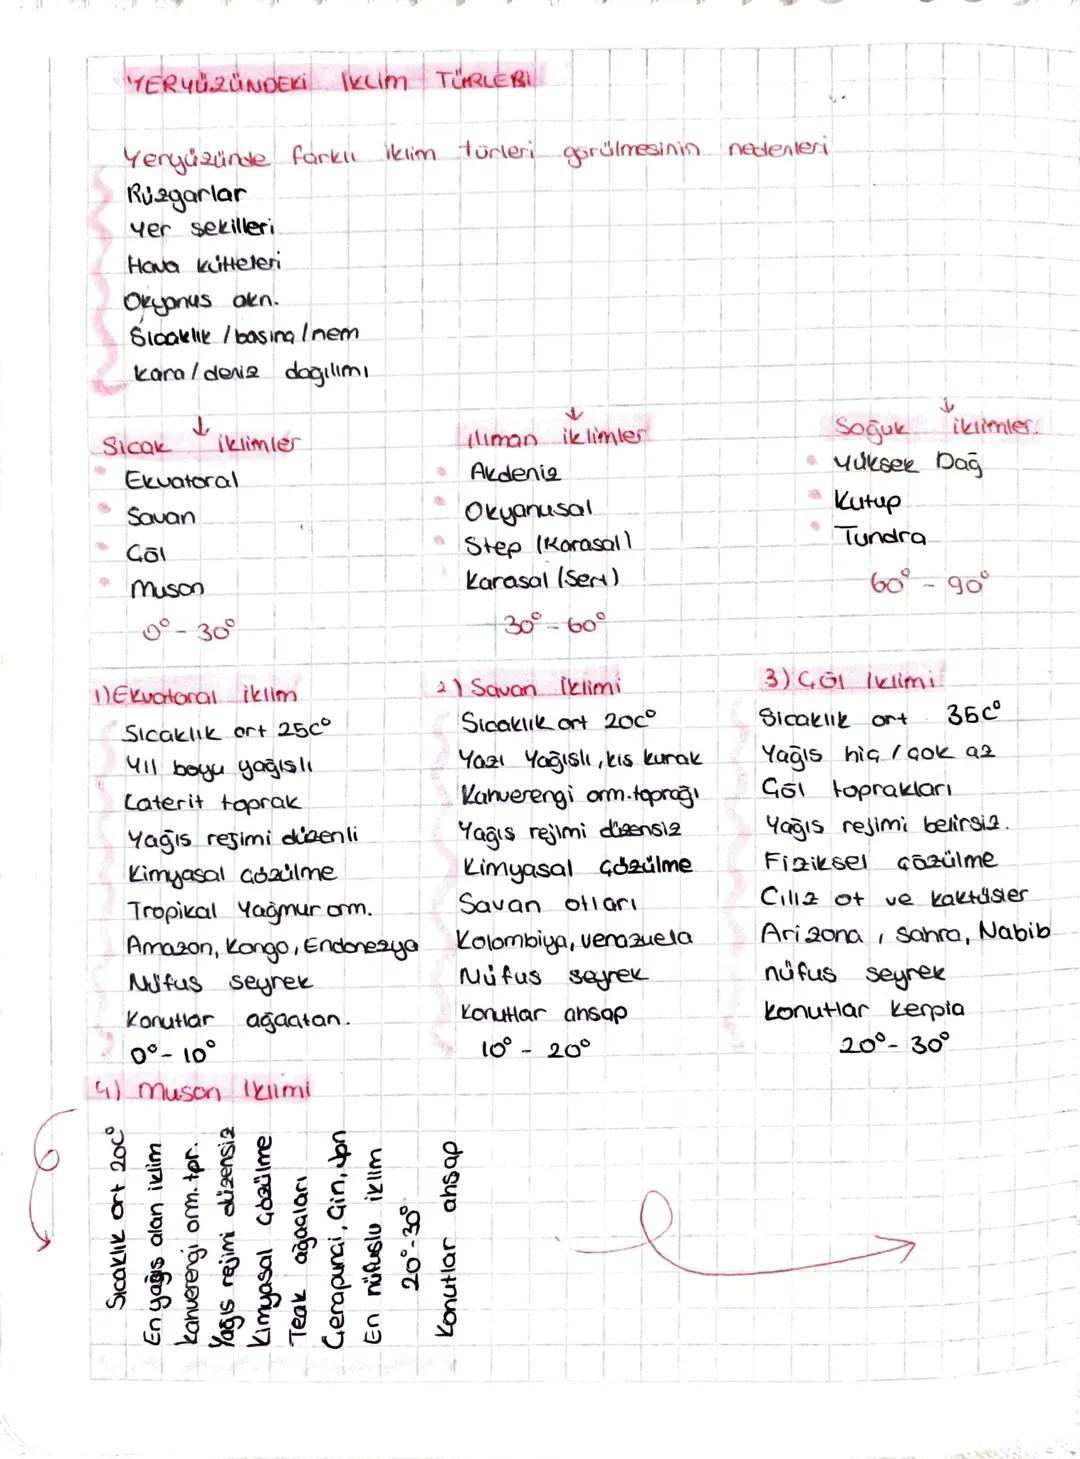 YERYÜZÜNDEKİ İKLİM TÜRLERİ
Yeryüzünde farklı iklim türleri görülmesinin nedenleri
Rüzgarlar
Yer şekilleri
Hava kütleleri
Okyanus akn.
Sıcaklık / basınç / nem
Kara / deniz dağılımı
Sıcak iklimler
Ekvatoral
Savan
Çöl
Muson
0° - 30°
Ilıman iklimler
Akdeniz
Okyanusal
Step (Karasal)
Karasal (Sert)
30° - 60°
Soğuk iklimler.
Yüksek Dağ
Kutup
Tundra
60° - 90°
1) Ekvatoral iklim
Sıcaklık ort 25C°
Yıl boyu yağışlı
Laterit toprak
Yağış rejimi düzenli
Kimyasal çözülme
Tropikal Yağmur orm.
Amazon, Kongo, Endonezya
Nüfus seyrek
Konutlar ağaçtan.
0° - 10°
2) Savan İklimi
Sıcaklık ort 20C°
Yazı Yağışlı, kış kurak
Kahverengi orm. toprağı
Yağış rejimi düzensiz
Kimyasal çözülme
Savan otları
Kolombiya, Venazuela
Nüfus seyrek
Konutlar ahşap
10° - 20°
3) Çöl İklimi
Sıcaklık ort 35C°
Yağış hiç / çok az
Çöl toprakları
Yağış rejimi belirsiz.
Fiziksel çözülme
Cılız ot ve kaktüsler
Arizona, Sahra, Nabib
nüfus seyrek
konutlar kerpiç
20° - 30°
4) Muson İklimi
Sıcaklık ort 20C°
En yağış alan iklim
kahverengi orm. tpr.
Yağış rejimi düzensiz
Kimyasal çözülme
Teak ağaçları
Çerapunçi, Çin, Jpn
En nüfuslu iklim
20° - 30°
Konutlar ahşap